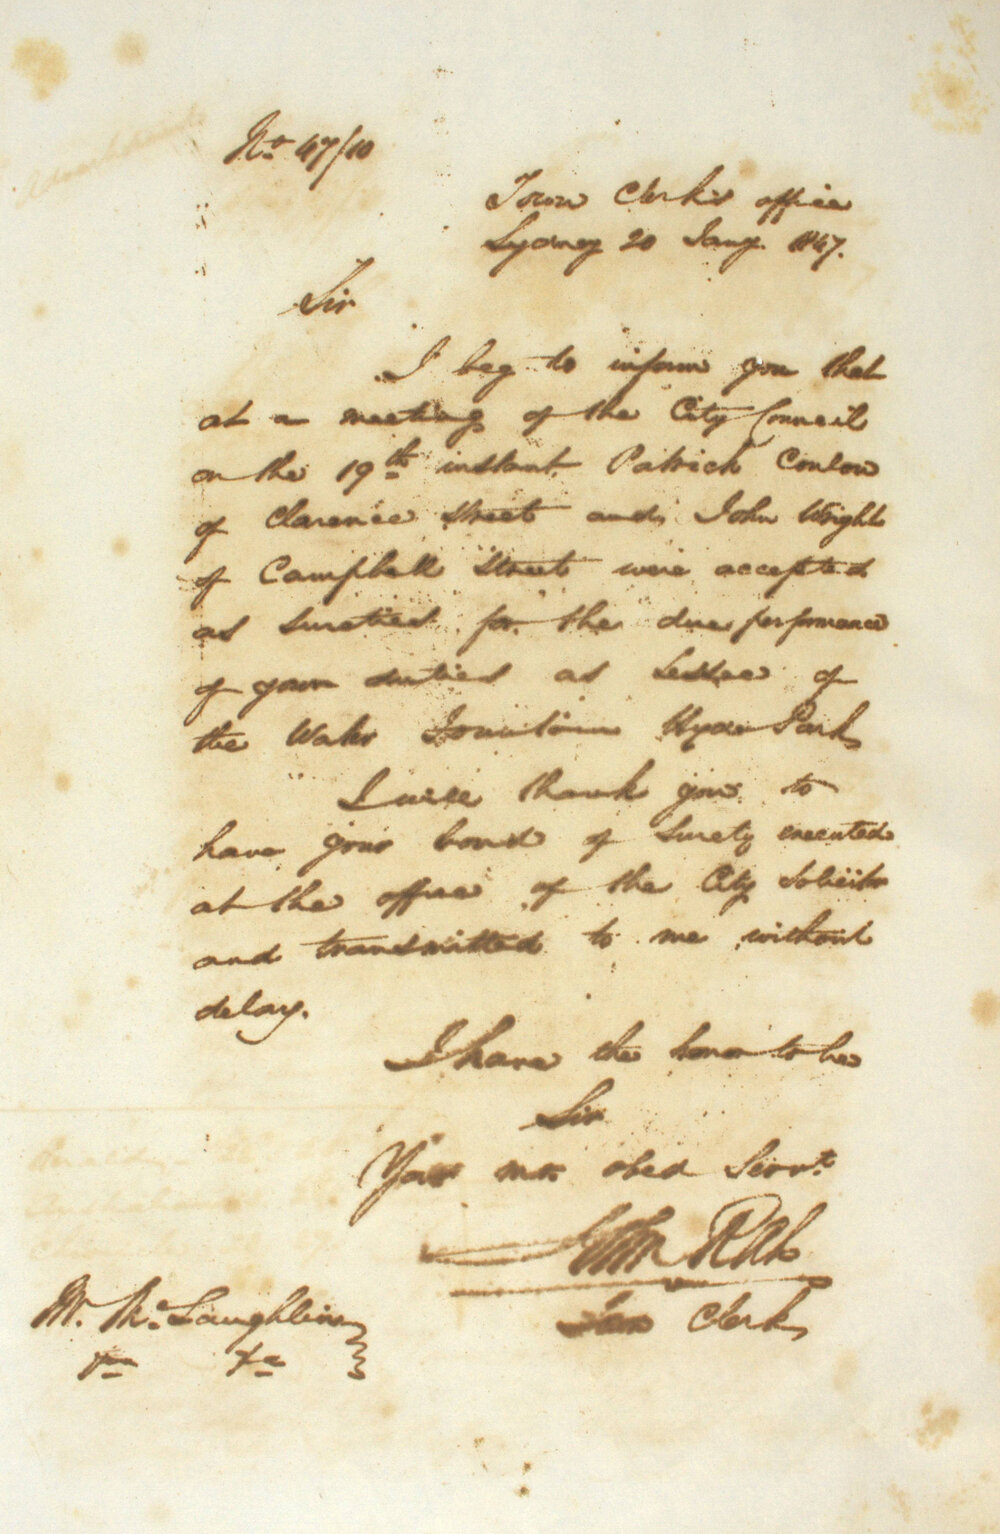 No. 47/10
Town Clerk's office
Sydney 20 Jany. 1847.
Sir
I beg to inform you that
at a meeting of the City Council
on the 19th instant Patrick Conlon
of Clarence Street and John Wright
of Campbell Street were accepted
as sureties for the due performance
of your duties as Lessee of
the Water Fountain Hyde Park
I will thank you to
have your bond of Surety executed
at the office of the City Solicitor
and transmitted to me without
delay.
I have the honor to be
Sir
Your mo obed Servt.
John Rae
Town Clerk
Mr. McLaughlin
&c &c